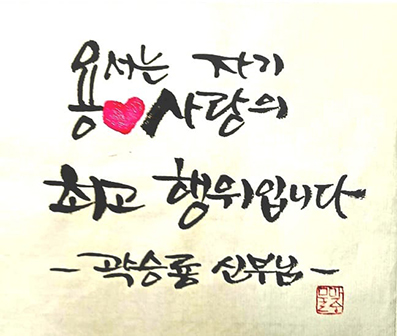 용서는 자기
사랑의
최고 행위입니다
- 곽승룡 신부님 -